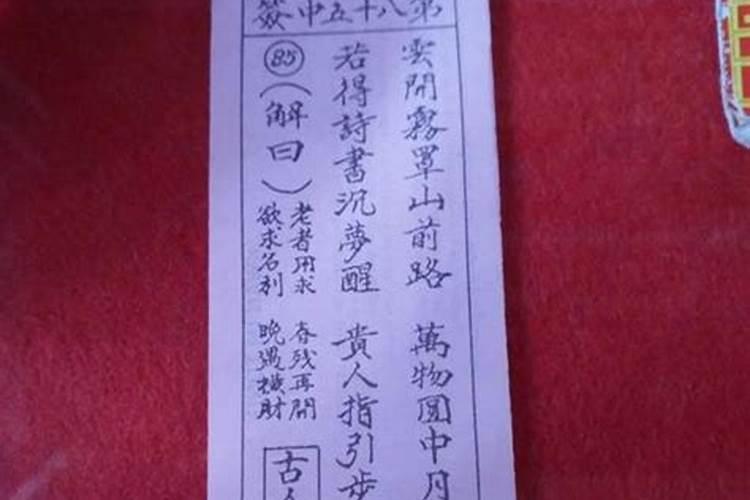 第八十五中簽
雲開霧罩山前路 萬物圓中月
若得詩書沉夢醒 貴人指引步
85
（解曰）
老者用求 春残再開
欲求名利 晚遇橫財
古人